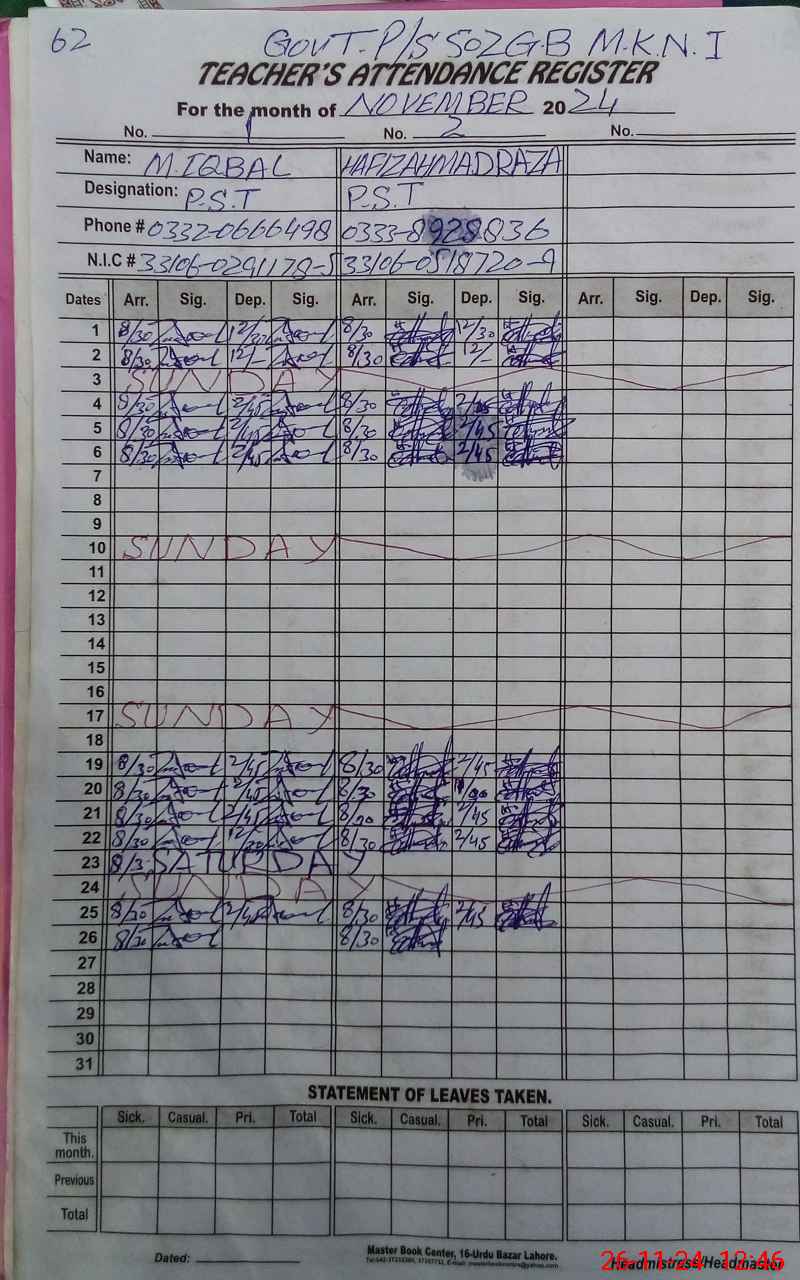 62
GOVT. P/S 502 G.B M.K.N.I
TEACHER'S ATTENDANCE REGISTER
For the month of NOVEMBER 2024
No. 1 No. 2 No.
Name: M. IQBAL HAFIZ AHMAD RAZA
Designation: P.S.T P.S.T
Phone # 0332-0666498 0333-8928836
N.I.C # 33106-0291178-5 33106-0518720-9
Dates Arr. Sig. Dep. Sig. Arr. Sig. Dep. Sig. Arr. Sig. Dep. Sig.
1 8/30 12/30 8/30 12/30
2 8/30 12/- 8/30 12/-
3 SUNDAY
4 8/30 2/45 8/30 2/45
5 8/30 2/45 8/30 2/45
6 8/30 2/45 8/30 2/45
7
8
9
10 SUNDAY
11
12
13
14
15
16
17 SUNDAY
18
19 8/30 2/45 8/30 2/45
20 8/30 2/45 8/30
21 8/30 2/45 8/30 2/45
22 8/30 12/30 8/30 2/45
23 8/3 SATURDAY
24 SUNDAY
25 8/30 2/45 8/30 2/45
26 8/30 8/30
27
28
29
30
31
STATEMENT OF LEAVES TAKEN.
Sick. Casual. Pri. Total Sick. Casual. Pri. Total Sick. Casual. Pri. Total
This month.
Previous
Total
Dated:
Master Book Center, 16-Urdu Bazar Lahore.
Headmistress/Headmaster
26-11-24 12:46